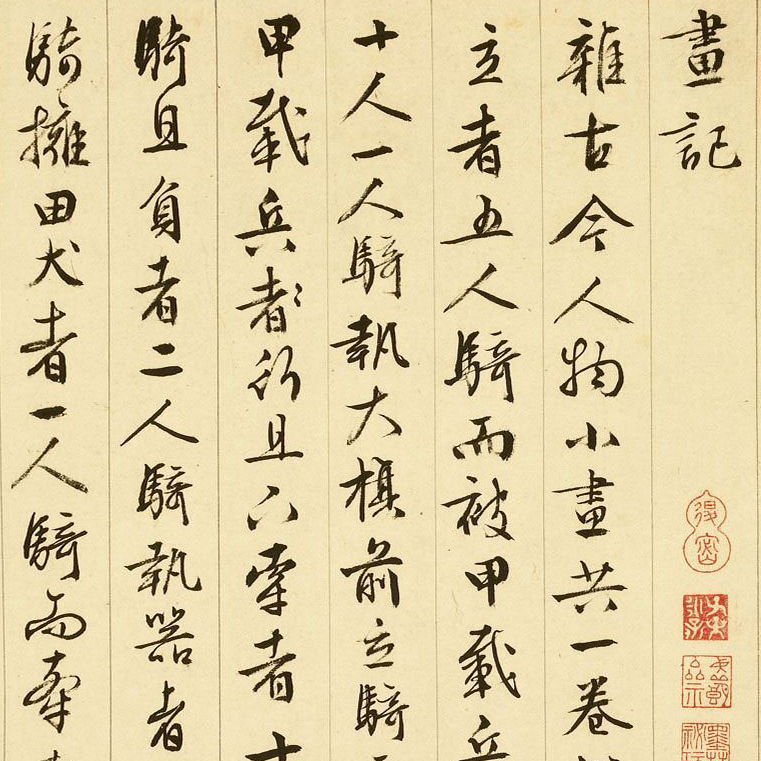 畫記
雜古今人物小畫共一卷
立者五人騎而被甲載兵
十人一人騎執大旗前立騎
甲載兵者行且下牽者十
騎且負者二人騎執器者
騎擁田犬者一人騎而牽